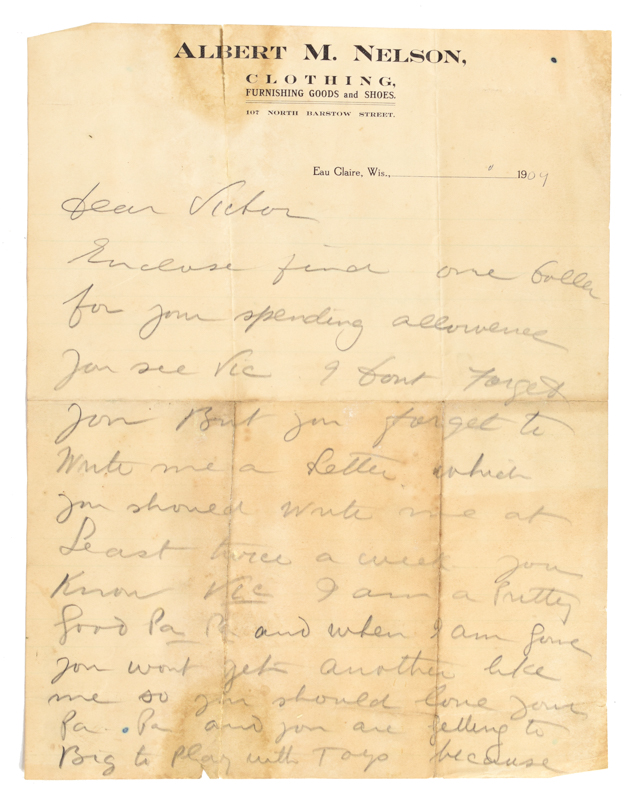 ALBERT M. NELSON,
CLOTHING,
FURNISHING GOODS and SHOES.
107 NORTH BARSTOW STREET.
Eau Claire, Wis., " 1909
Dear Victor
Enclose find one Doller
for your spending allowence
you see Vic I dont Forget
you But you forget to
Write me a Letter which
you should write me at
Least twice a week you
Know Vic I am a Pretty
Good Pa Pa and when I am gone
you wont get another like
me so you should love your
Pa . Pa and you are getting to
Big to Play with Toys because